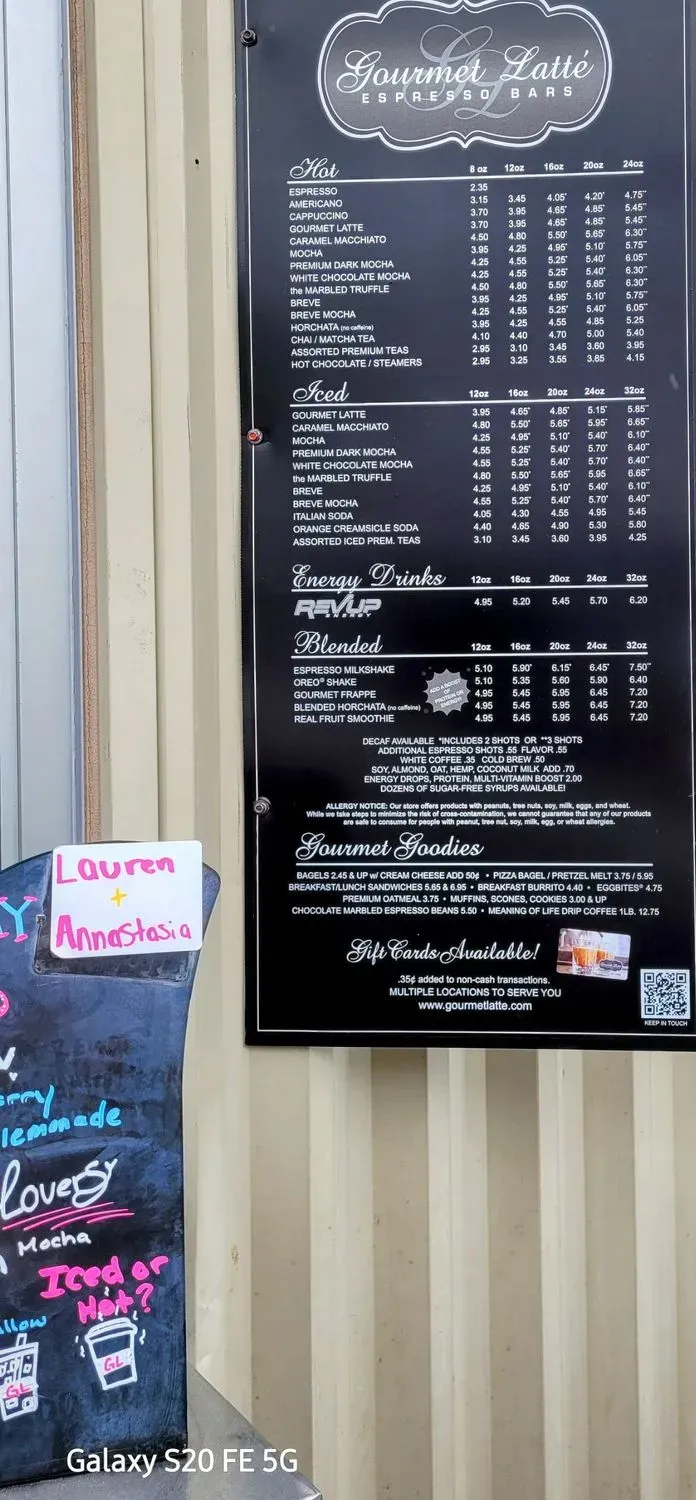 Gourmet Latté
ESPRESSO BARS
Hot 8 oz 12oz 16oz 20oz 24oz
ESPRESSO 2.35
AMERICANO 3.15 3.45 4.05* 4.20* 4.75**
CAPPUCCINO 3.70 3.95 4.65* 4.85* 5.45**
GOURMET LATTE 3.70 3.95 4.65* 4.85* 5.45**
CARAMEL MACCHIATO 4.50 4.80 5.50* 5.65* 6.30**
MOCHA 3.95 4.25 4.95* 5.10* 5.75**
PREMIUM DARK MOCHA 4.25 4.55 5.25* 5.40* 6.05**
WHITE CHOCOLATE MOCHA 4.25 4.55 5.25* 5.40* 6.30**
the MARBLED TRUFFLE 4.50 4.80 5.50* 5.65* 6.30**
BREVE 3.95 4.25 4.95* 5.10* 5.75**
BREVE MOCHA 4.25 4.55 5.25* 5.40* 6.05**
HORCHATA (no caffeine) 3.95 4.25 4.55 4.85 5.25
CHAI / MATCHA TEA 4.10 4.40 4.70 5.00 5.40
ASSORTED PREMIUM TEAS 2.95 3.10 3.45 3.60 3.95
HOT CHOCOLATE / STEAMERS 2.95 3.25 3.55 3.85 4.15
Iced 12oz 16oz 20oz 24oz 32oz
GOURMET LATTE 3.95 4.65* 4.85* 5.15* 5.85**
CARAMEL MACCHIATO 4.80 5.50* 5.65* 5.95* 6.65**
MOCHA 4.25 4.95* 5.10* 5.40* 6.10**
PREMIUM DARK MOCHA 4.55 5.25* 5.40* 5.70* 6.40**
WHITE CHOCOLATE MOCHA 4.55 5.25* 5.40* 5.70* 6.40**
the MARBLED TRUFFLE 4.80 5.50* 5.65* 5.95 6.65**
BREVE 4.25 4.95* 5.10* 5.40* 6.10**
BREVE MOCHA 4.55 5.25* 5.40* 5.70* 6.40**
ITALIAN SODA 4.05 4.30 4.55 4.95 5.45
ORANGE CREAMSICLE SODA 4.40 4.65 4.90 5.30 5.80
ASSORTED ICED PREM. TEAS 3.10 3.45 3.60 3.95 4.25
Energy Drinks 12oz 16oz 20oz 24oz 32oz
REVUP ENERGY 4.95 5.20 5.45 5.70 6.20
Blended 12oz 16oz 20oz 24oz 32oz
ESPRESSO MILKSHAKE 5.10 5.90* 6.15* 6.45* 7.50**
OREO® SHAKE 5.10 5.35 5.60 5.90 6.40
GOURMET FRAPPE 4.95 5.45 5.95 6.45 7.20
BLENDED HORCHATA (no caffeine) 4.95 5.45 5.95 6.45 7.20
REAL FRUIT SMOOTHIE 4.95 5.45 5.95 6.45 7.20
ADD A BOOST
OF
PROTEIN OR
ENERGY!
DECAF AVAILABLE *INCLUDES 2 SHOTS OR **3 SHOTS
ADDITIONAL ESPRESSO SHOTS .55 FLAVOR .55
WHITE COFFEE .35 COLD BREW .50
SOY, ALMOND, OAT, HEMP, COCONUT MILK ADD .70
ENERGY DROPS, PROTEIN, MULTI-VITAMIN BOOST 2.00
DOZENS OF SUGAR-FREE SYRUPS AVAILABLE!
ALLERGY NOTICE: Our store offers products with peanuts, tree nuts, soy, milk, eggs, and wheat.
While we take steps to minimize the risk of cross-contamination, we cannot guarantee that any of our products
are safe to consume for people with peanut, tree nut, soy, milk, egg, or wheat allergies.
Gourmet Goodies
BAGELS 2.45 & UP w/ CREAM CHEESE ADD 50¢ • PIZZA BAGEL / PRETZEL MELT 3.75 / 5.95
BREAKFAST/LUNCH SANDWICHES 5.65 & 6.95 • BREAKFAST BURRITO 4.40 • EGGBITES® 4.75
PREMIUM OATMEAL 3.75 • MUFFINS, SCONES, COOKIES 3.00 & UP
CHOCOLATE MARBLED ESPRESSO BEANS 5.50 • MEANING OF LIFE DRIP COFFEE 1LB. 12.75
Gift Cards Available!
.35¢ added to non-cash transactions.
MULTIPLE LOCATIONS TO SERVE YOU
www.gourmetlatte.com
KEEP IN TOUCH
Lauren
+
Annastasia
lemonade
Lovers
Mocha
Iced or
Hot?
GL
GL
Galaxy S20 FE 5G